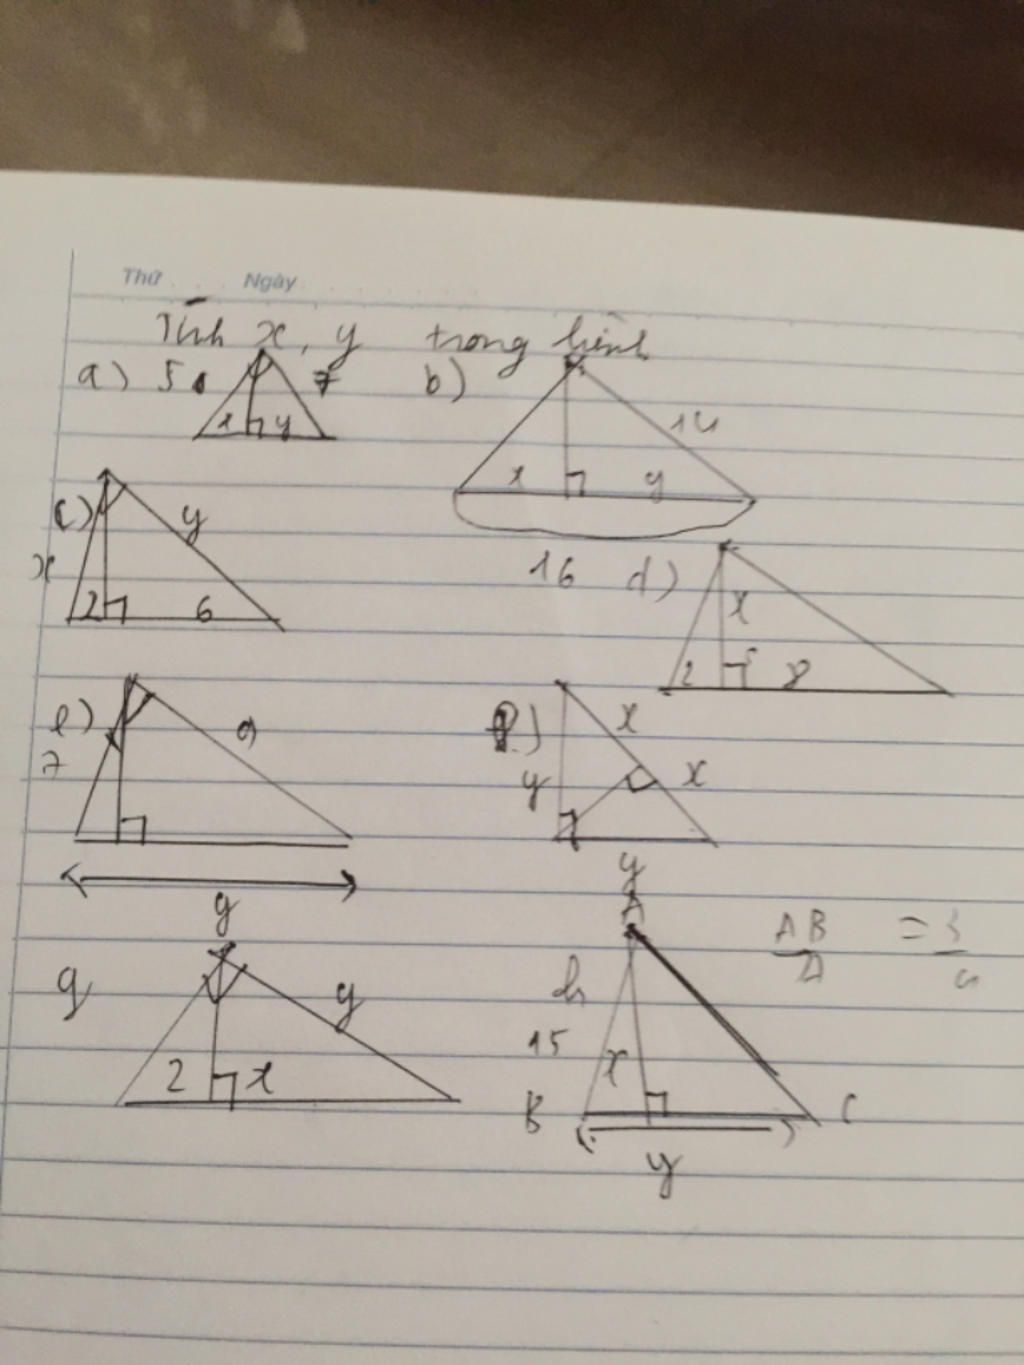 Thứ Ngày
Tính x, y trong hình
a) 5 7 x y
b) 14 x y 16
c) x y 2 6
d) x 2 8
e) 7 9 y
f) x x y y
g 2 x y
h A 15 x B C y
AB = 3
4